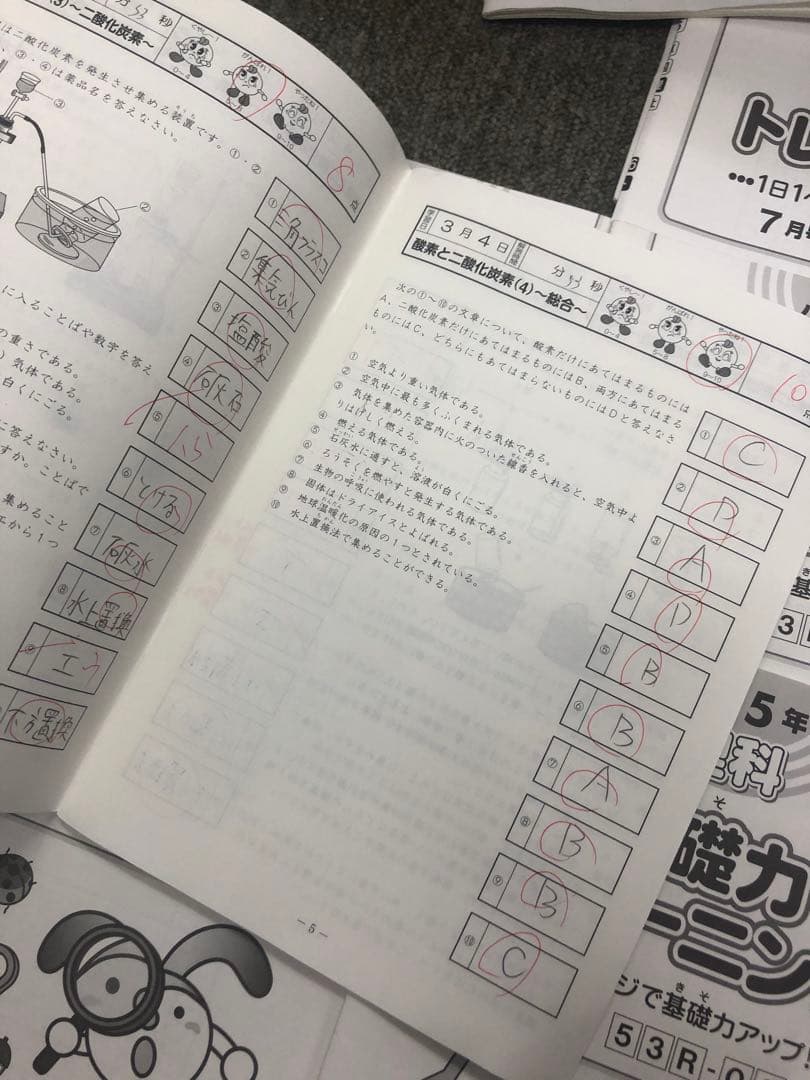 分53秒
(3)～二酸化炭素～
くやしー!
がんばれ!
やったね!
0～4
5～8
9～10
8点
は二酸化炭素を発生させ集める装置です。①・②
、③・④は薬品名を答えなさい。
③
②
に入ることばや数字を答え
の重さである。
気体である。
白くにごる。
に答えなさい。
すか。ことばで
集めること
エから1つ
① 三角フラスコ
② 集気びん
③ 塩酸
④ 石灰石
⑤
⑥ とける
⑦ 石灰水
⑧ 水上置換
⑨
下方置換
学習日 3月4日
分33秒
酸素と二酸化炭素(4)～総合～
くやしー!
がんばれ!
やったね!
0～4
5～8
9～10
10点
次の①～⑩の文章について、酸素だけにあてはまるものには
A、二酸化炭素だけにあてはまるものにはB、両方にあてはまる
ものにはC、どちらにもあてはまらないものにはDと答えなさ
い。
① 空気より重い気体である。
② 空気中に最も多くふくまれる気体である。
③ 気体を集めた容器内に火のついた線香を入れると、空気中よ
りはげしく燃える。
④ 燃える気体である。
⑤ 石灰水に通すと、溶液が白くにごる。
⑥ ろうそくを燃やすと発生する気体である。
⑦ 生物の呼吸に使われる気体である。
⑧ 固体はドライアイスとよばれる。
⑨ 地球温暖化の原因の1つとされている。
⑩ 水上置換法で集めることができる。
① C
② D
③ A
④ D
⑤ B
⑥ B
⑦ A
⑧ B
⑨ B
⑩ C
－5－
トレ
•••1日1
7月
5年
理科
礎力
ーニン
ジで基礎力アップ!
53R-0